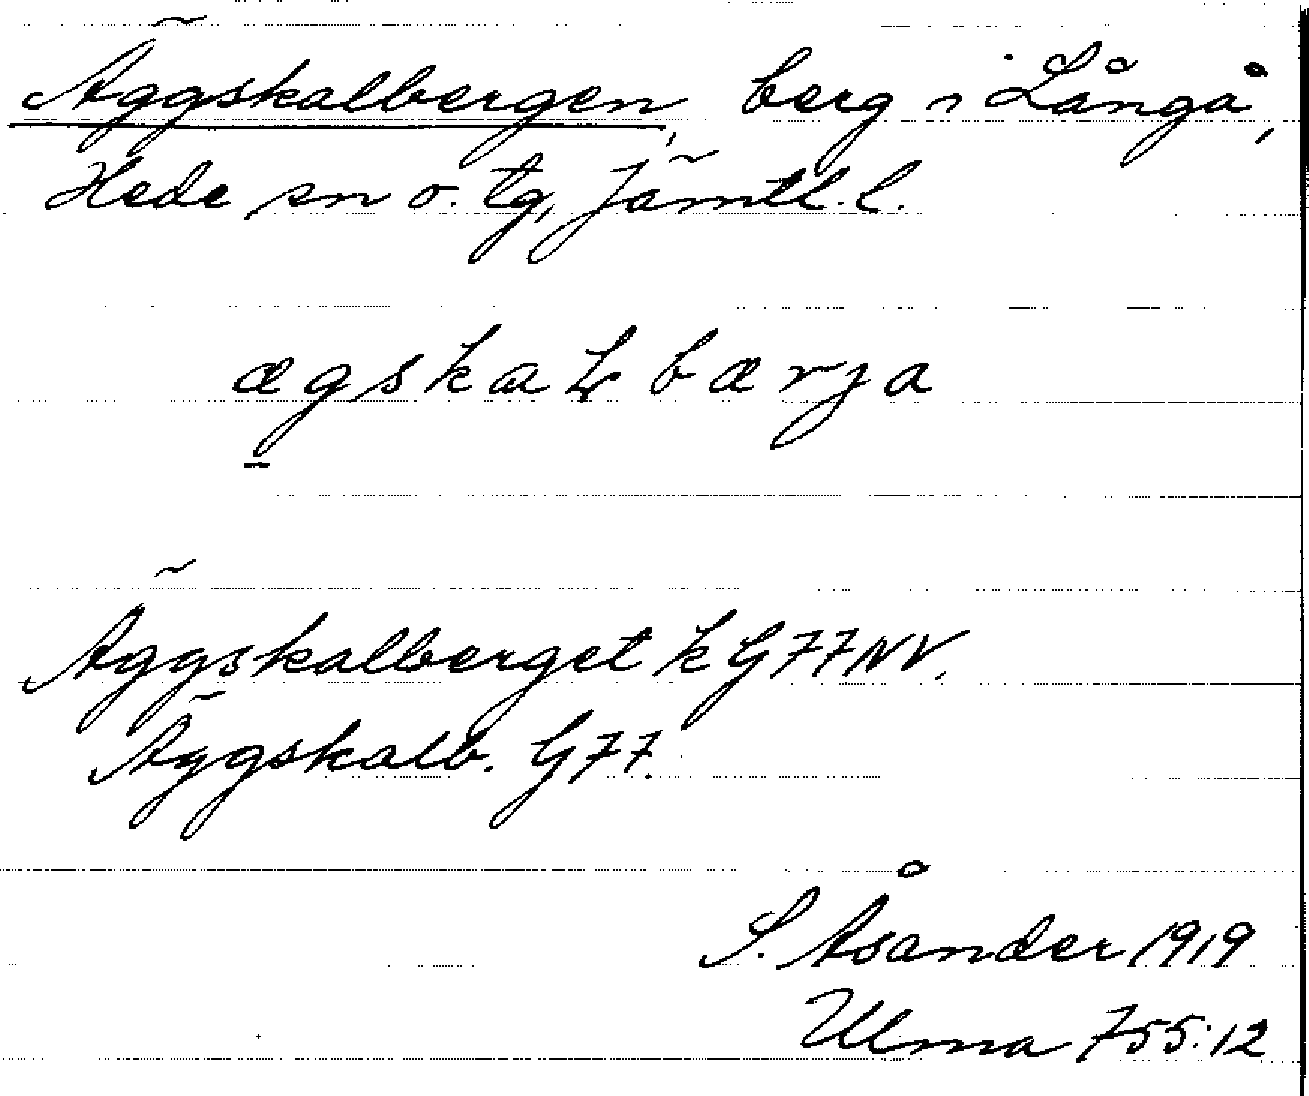 Äggskalbergen, berg i Långå,
Hede sn o. tg, Jämtl. l.
ægskaḷbærja
Äggskalberget k G77NV.
Äggskalb. G77.
S. Åsander 1919
Ulma 755:12